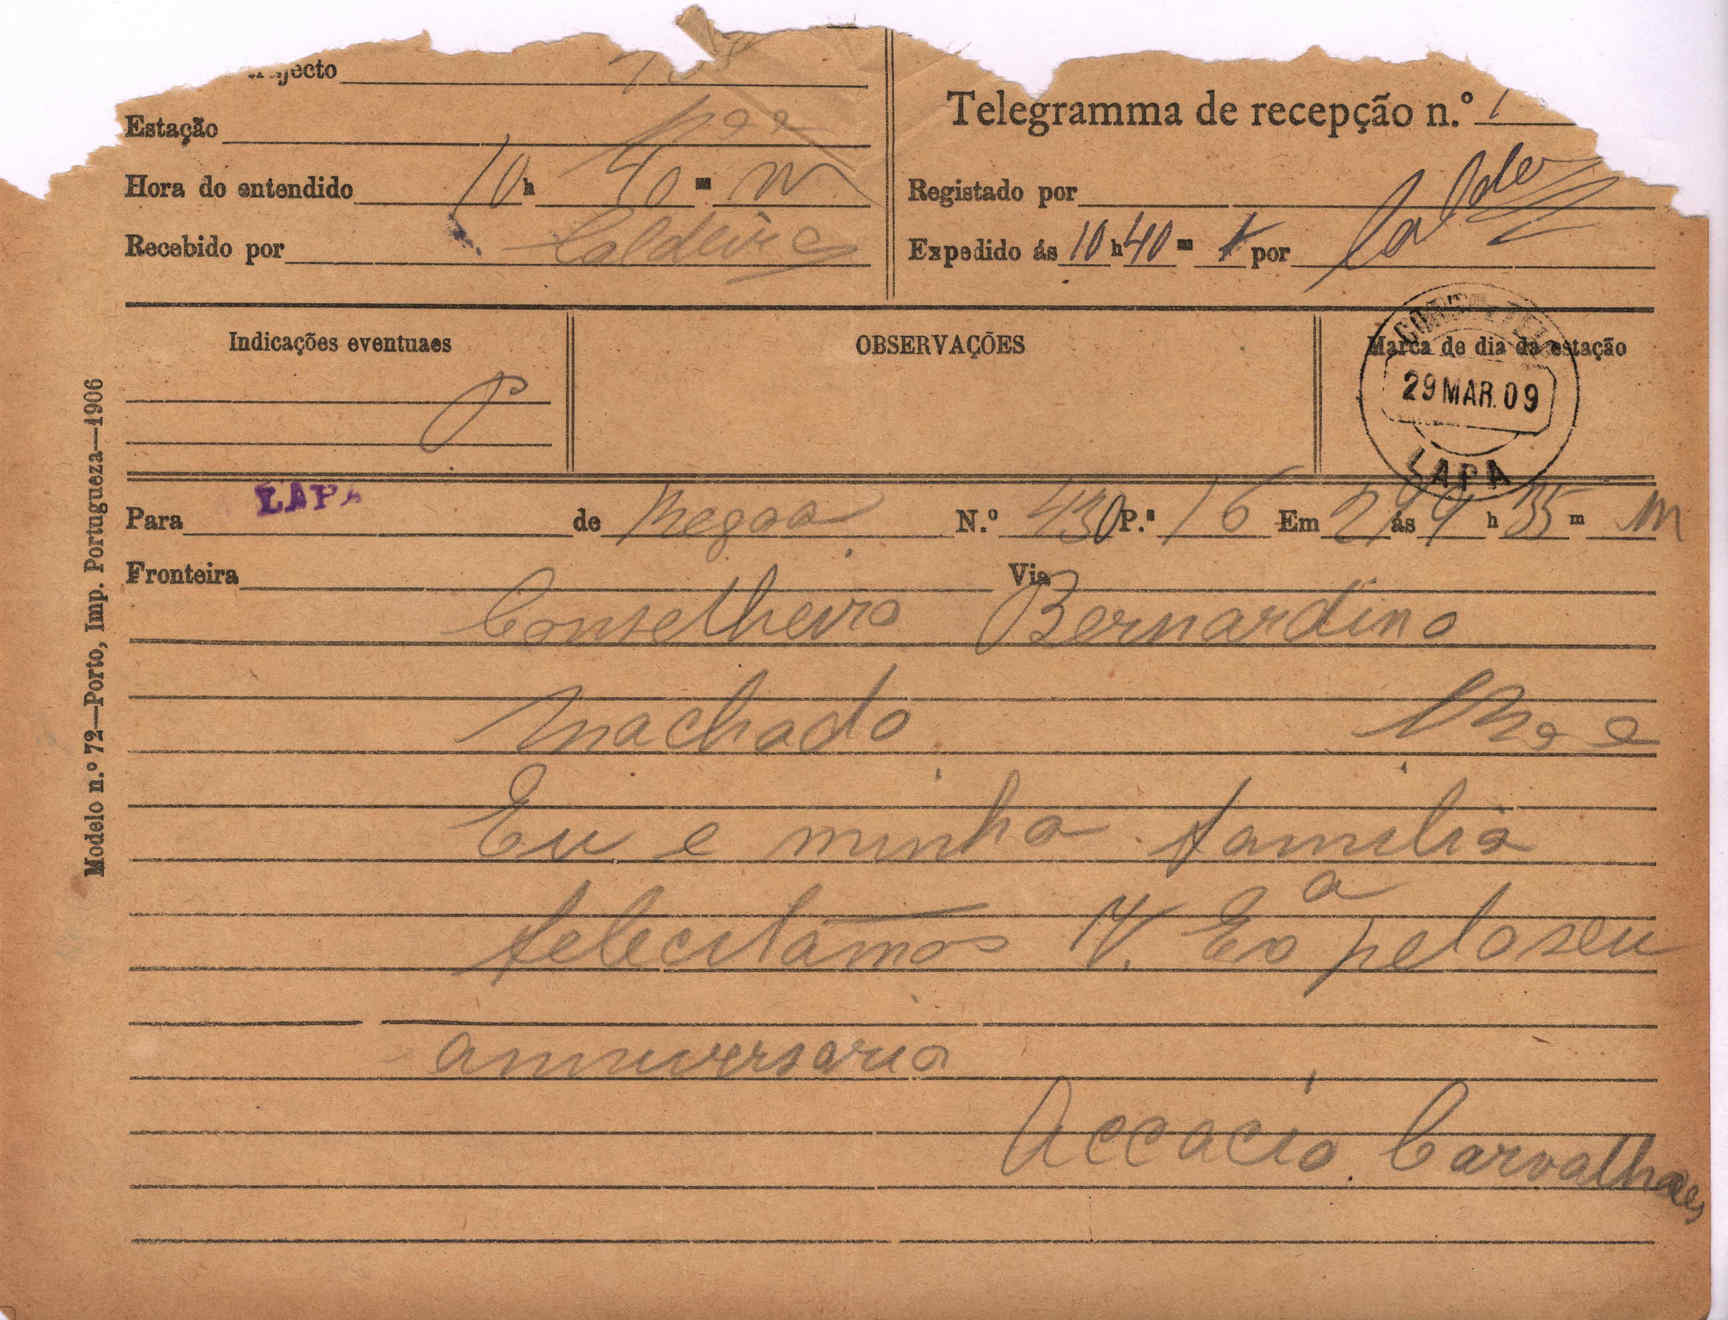 Telegramma de recepção n.º
Estação
Hora do entendido 10 h 40 m. m
Registado por
Recebido por Caldeira
Expedido ás 10 h 40 m por
Indicações eventuaes
OBSERVAÇÕES
Marca de dia da estação
29 MAR. 09
LAPA
Modelo n.º 72—Porto, Imp. Portugueza—1906
Para LAPA de Regoa N.º 430 P.ª 16 Em 29 ás 9 h 35 m m
Fronteira Via
Conselheiro Bernardino
Machado
Eu e minha familia
felecitamos V. Exª pelo seu
anniversario
Accacio Carvalhaes